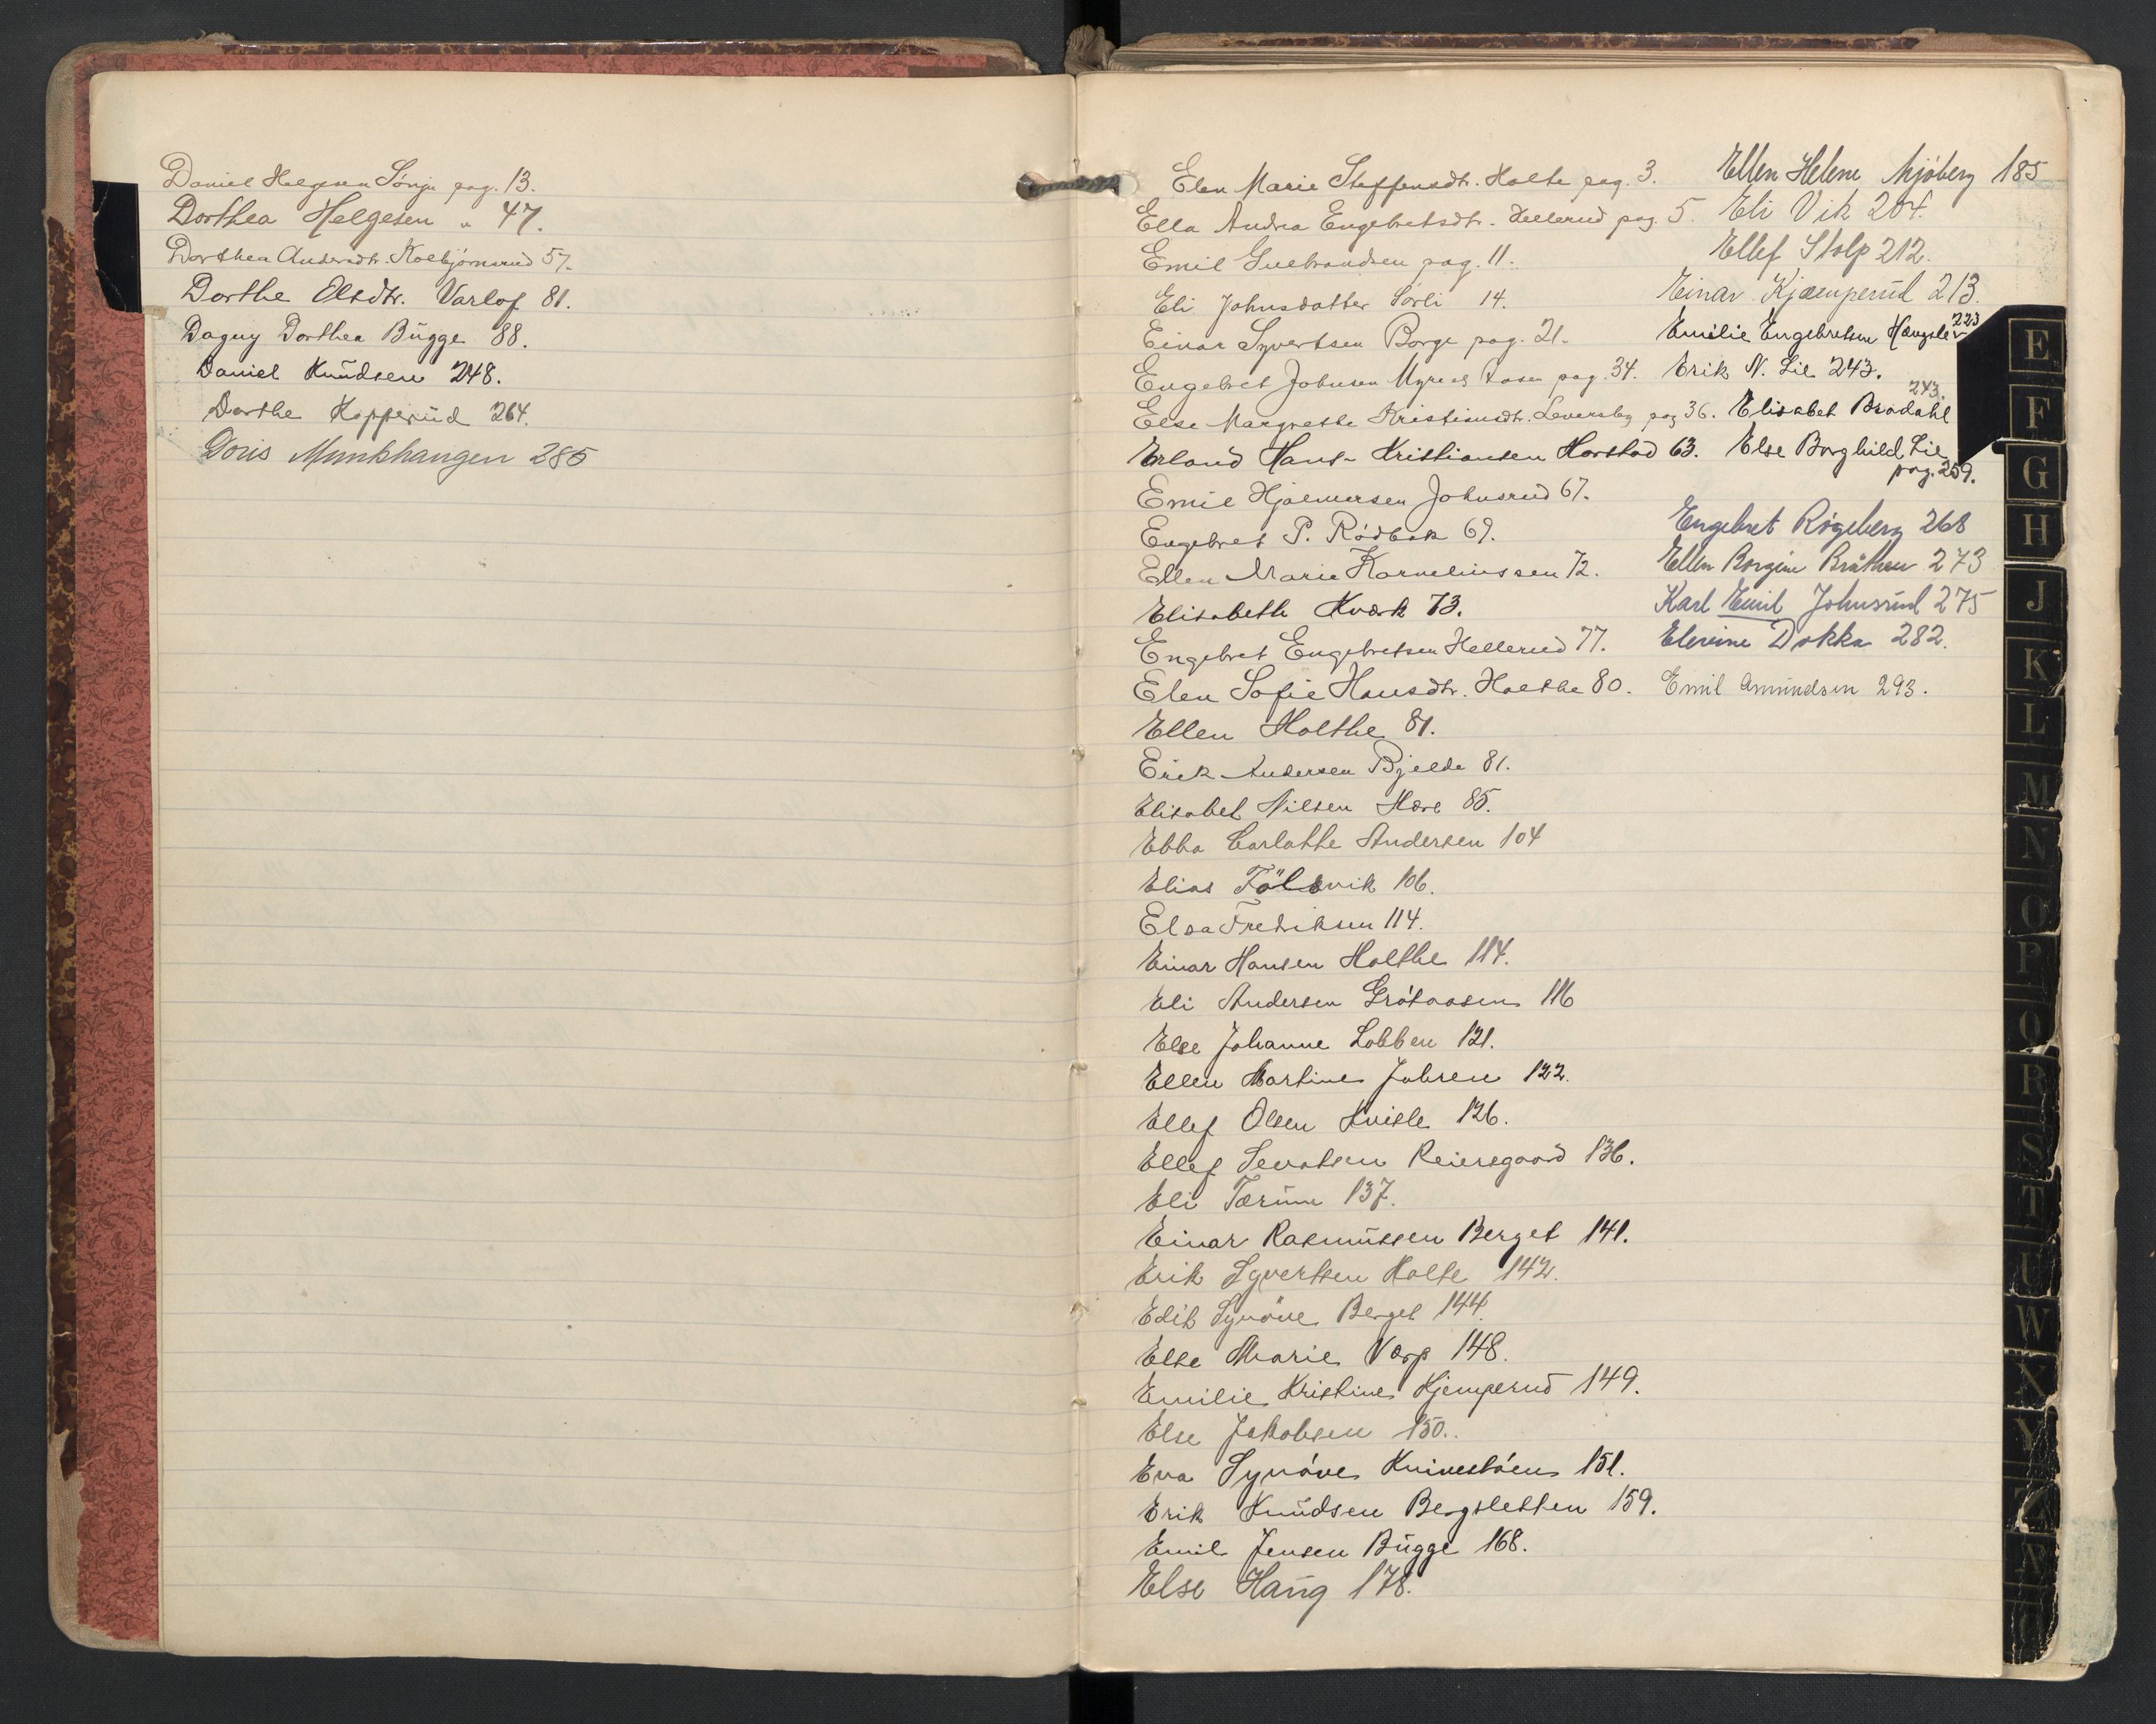 Daniel Helgesen Sønju pag. 13.
Dorthea Helgesen " 47.
Dorthea Andersdtr. Kolbjørnsrud 57.
Dorthe Olsdtr. Varlof 81.
Dagny Dorthea Bügge 88.
Daniel Knüdsen 248.
Dorthe Kopperüd 264.
Doris Munkhaugen 285
Elen Marie Steffensdtr. Holte pag. 3.
Ella Andrea Engebretsdtr. Hellerud pag. 5.
Emil Gulbrandsen pag. 11.
Eli Johnsdatter Sørli 14.
Einar Syvertsen Borge pag. 21.
Engebret Johnsen pag. 34.
Else Margrethe Kristiansdtr. Leversby pag 36.
Erland Hans-Kristiansen Horstad 63.
Emil Hjalmersen Johnsrud 67.
Engebret P. Rødbak 69.
Ellen Marie Korneliussen 72.
Elisabeth Kværk 73.
Engebret Engebretsen Hellerud 77.
Elen Sofie Hansdtr. Holthe 80.
Ellen Holthe 81.
Erik Andersen Bjelde 81.
Elisabet Nilsen Høre 85.
Ebba Carlothe Andersen 104
Elias Fölsvik 106.
Elsa Fredriksen 114.
Einar Hansen Holthe 114.
Eli Andersen Gråtaasen 116
Else Johanne Lobben 121.
Ellen Martine Juhren 122.
Ellef Olsen Kvisle 126.
Ellef Sevatsen Reiersgaard 136.
Eli Tærüm 137.
Einar Rasmüssen Berget 141.
Erik Syvertsen Holte 142.
Edit Synöve Berget 144.
Else Marie Værp 148.
Emilie Kristine Kjemperud 149.
Else Jakobsen 150.
Eva Synöve Knivestöen 151.
Erik Knüdsen Bergsletten 159.
Emil Jensen Bügge 168.
Else Haüg 178.
Ellen Helene Mjøberg 185
Eli Vik 204.
Ellef Stolp 212.
Einar Kjæmperüd 213.
Emilie Engebretsen 223
Erik N. Lie 243.
Elisabet Brødahl 243.
Else Borghild Lie
pag. 259.
Engebret Rögeberg 268
Ellen Borgine Bråthen 273
Karl Emil Johnsrüd 275
Elevine Dokka 282.
Emil Amündsen 293.
E
F
G
H
J
K
L
M
N
O
P
Q
R
S
T
U
W
X
Y
Z
Æ